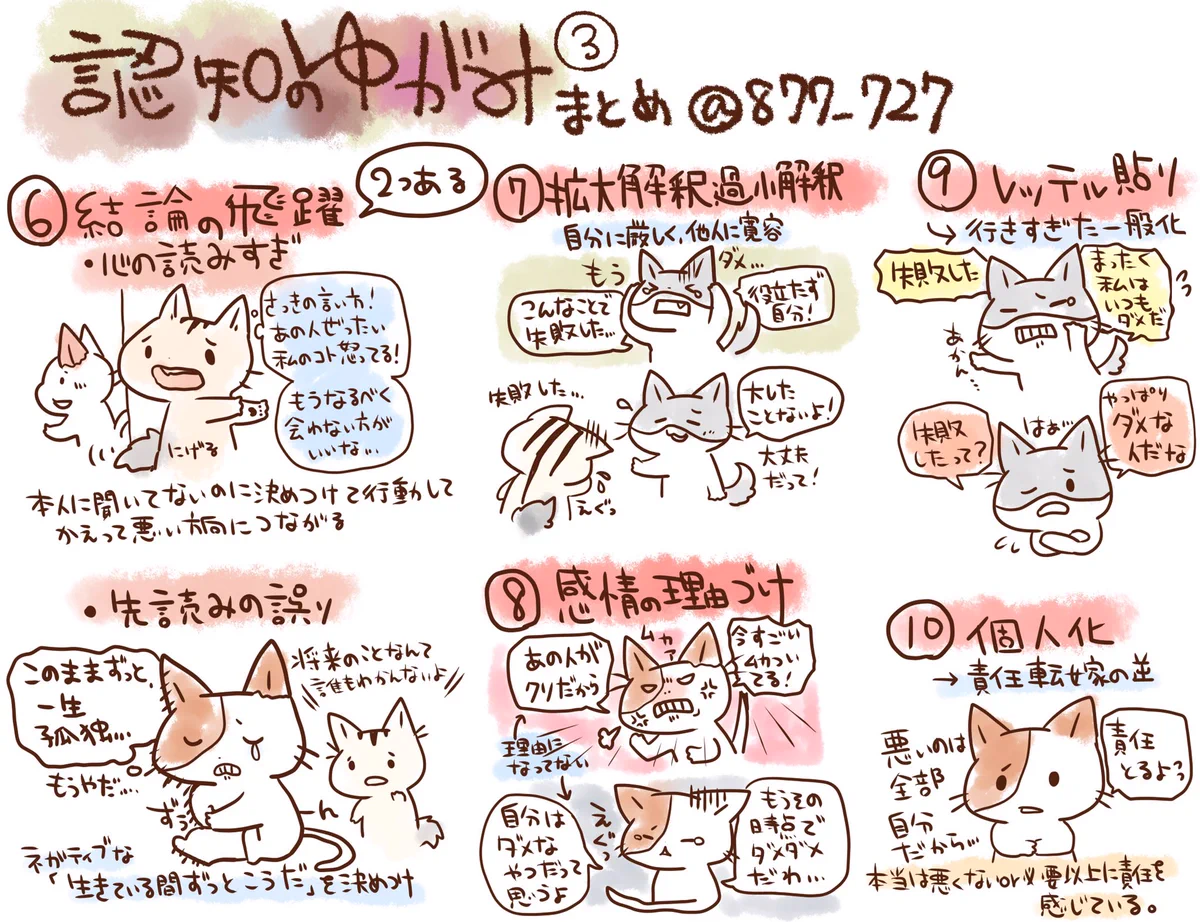 認知のゆがみ③
まとめ @877_727
⑥結論の飛躍
2つある
・心の読みすぎ
さっきの言い方!
あの人ぜったい
私のコト怒ってる!
もうなるべく
会わない方が
いいな…
にげる
本人に聞いてないのに決めつけて行動して
かえって悪い方向につながる
・先読みの誤り
このままずっと、
一生
孤独…
もうやだ…
将来のことなんて
誰もわかんないよ
ずぅ
ん
ネガティブな
「生きている間ずっとこうだ」を決めつけ
⑦拡大解釈過小解釈
自分に厳しく、他人に寛容
もう
ダメ…
こんなことで
失敗した…
役立たず
自分!
失敗した…
えぐっ
大した
ことないよ!
大丈夫
だって!
⑧感情の理由づけ
ムカァ
あの人が
クソだから
今すごい
ムカつい
てる!
理由に
なってない
自分は
ダメな
やつだって
思うよ
えぐっ
もうその
時点で
ダメダメ
だわ…
⑨レッテル貼り
→行きすぎた一般化
失敗した
まったく
私は
いつも
ダメだ
あかん…
失敗
したって?
はぁ…
やっぱり
ダメな
んだな
⑩個人化
→責任転嫁の逆
悪いのは
全部
自分
だから…
責任
とるよ?
本当は悪くないor必要以上に責任を
感じている。